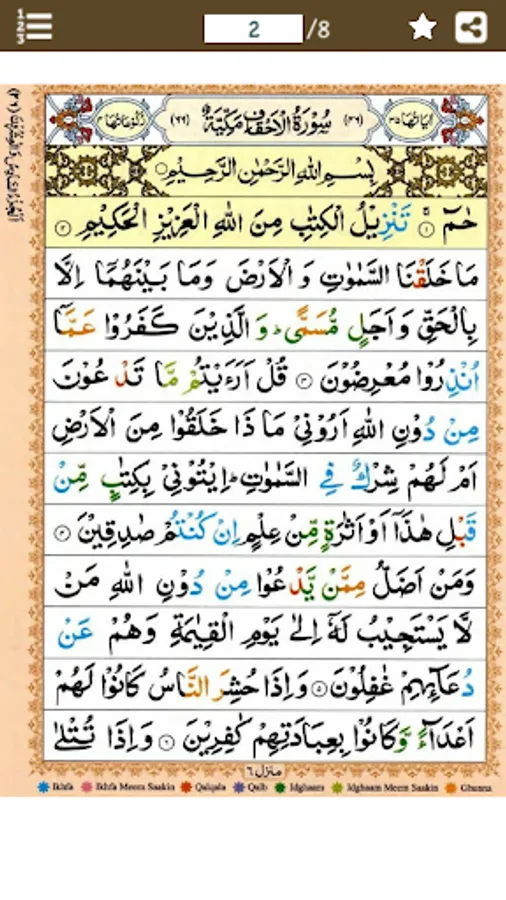 2 /8
اٰیَاتُهَا ٣٥ (٤٦) سُوْرَةُ الْاَحْقَافِ مَكِّيَّةٌ (٦٦) رُكُوْعَاتُهَا ٤
بِسْمِ اللهِ الرَّحْمٰنِ الرَّحِيْمِ
حٰمٓ ۚ ﴿١﴾ تَنْزِيْلُ الْكِتٰبِ مِنَ اللهِ الْعَزِيْزِ الْحَكِيْمِ ﴿٢﴾
مَا خَلَقْنَا السَّمٰوٰتِ وَ الْاَرْضَ وَمَا بَيْنَهُمَاۤ اِلَّا
بِالْحَقِّ وَ اَجَلٍ مُّسَمًّى ؕ وَ الَّذِيْنَ كَفَرُوْا عَمَّاۤ
اُنْذِرُوْا مُعْرِضُوْنَ ﴿٣﴾ قُلْ اَرَءَيْتُمْ مَّا تَدْعُوْنَ
مِنْ دُوْنِ اللهِ اَرُوْنِيْ مَا ذَا خَلَقُوْا مِنَ الْاَرْضِ
اَمْ لَهُمْ شِرْكٌ فِي السَّمٰوٰتِ ؕ اِيْتُوْنِيْ بِكِتٰبٍ مِّنْ
قَبْلِ هٰذَاۤ اَوْ اَثٰرَةٍ مِّنْ عِلْمٍ اِنْ كُنْتُمْ صٰدِقِيْنَ ﴿٤﴾
وَمَنْ اَضَلُّ مِمَّنْ يَّدْعُوْا مِنْ دُوْنِ اللهِ مَنْ
لَّا يَسْتَجِيْبُ لَهٗۤ اِلٰى يَوْمِ الْقِيٰمَةِ وَهُمْ عَنْ
دُعَآئِهِمْ غٰفِلُوْنَ ﴿٥﴾ وَاِذَا حُشِرَ النَّاسُ كَانُوْا لَهُمْ
اَعْدَآءً وَّكَانُوْا بِعِبَادَتِهِمْ كٰفِرِيْنَ ﴿٦﴾ وَاِذَا تُتْلٰى
منزل ٦
Ikhfa Ikhfa Meem Saakin Qalqala Qalb Idghaam Idghaam Meem Saakin Ghunna